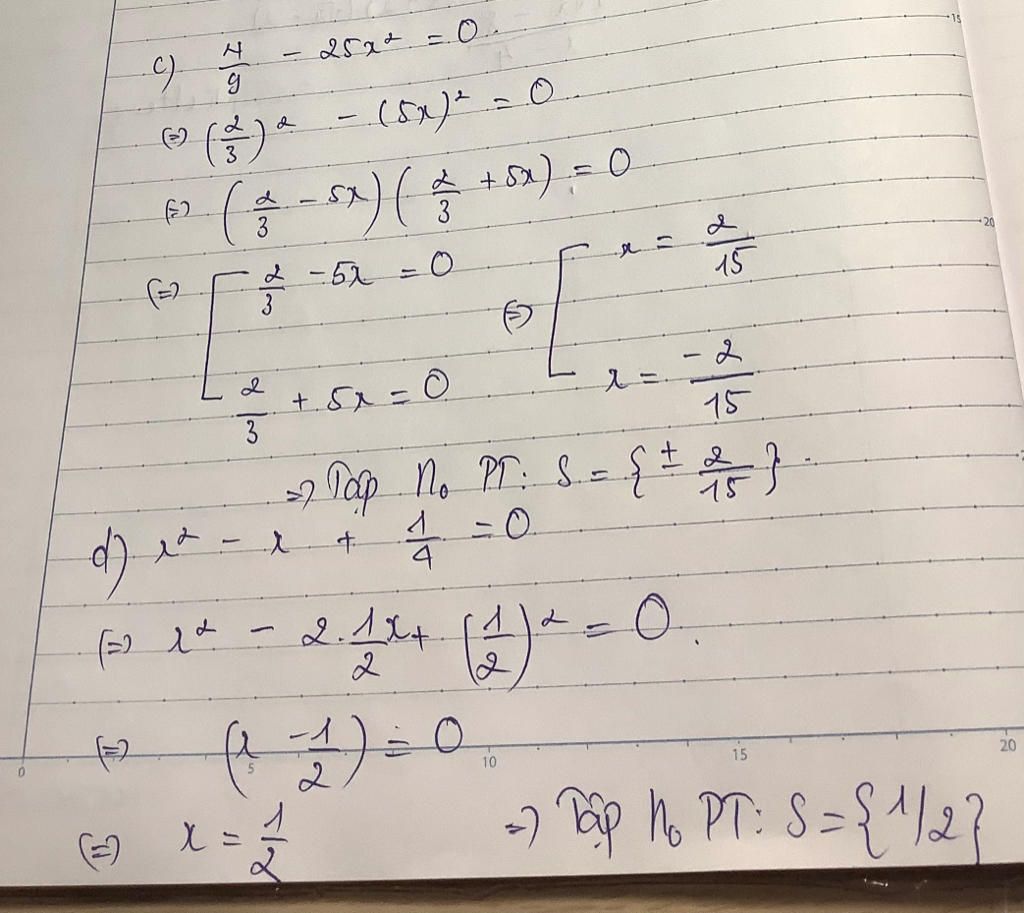 c) 4/9 - 25x² = 0.
(=) (2/3)² - (5x)² = 0
(=) (2/3 - 5x)(2/3 + 5x) = 0
(=) [ 2/3 - 5x = 0 (=) [ x = 2/15
2/3 + 5x = 0 x = -2/15
=) Tập No PT: S = {± 2/15}.
d) x² - x + 1/4 = 0
(=) x² - 2.1/2x + (1/2)² = 0.
(=) (x - 1/2) = 0
(=) x = 1/2 =) Tập No PT: S = {1/2}
0 5 10 15 20
15
20